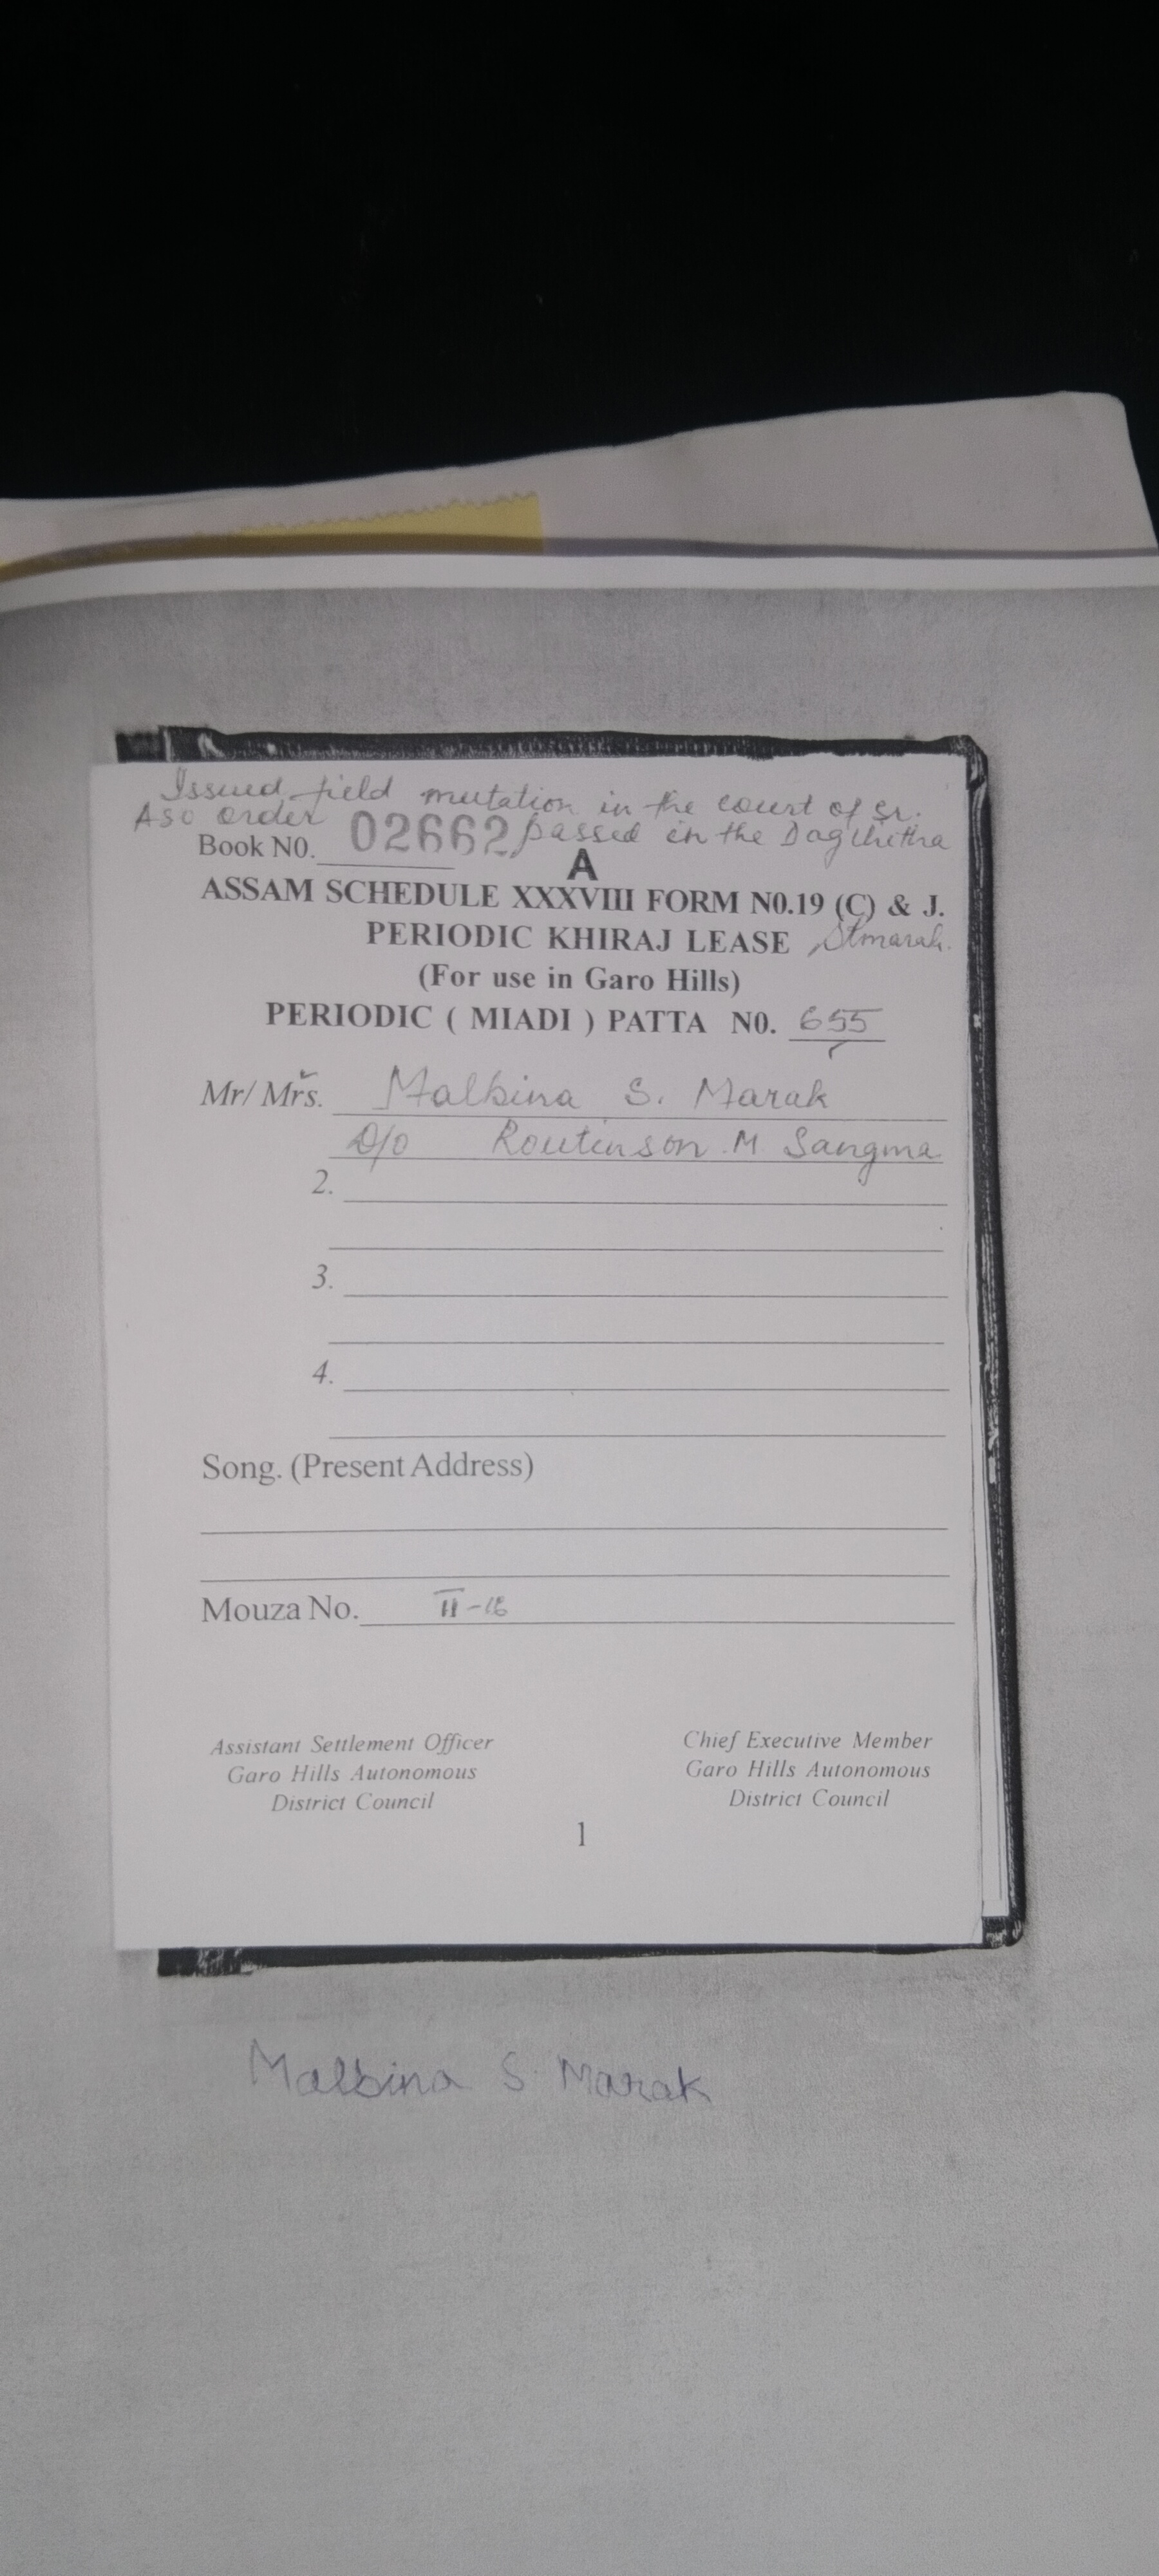 Issued field mutation in the court of Sr.
ASO order passed in the Dag Chitha
Book N0. 02662
A
ASSAM SCHEDULE XXXVIII FORM N0.19 (C) & J.
PERIODIC KHIRAJ LEASE
(For use in Garo Hills)
PERIODIC ( MIADI ) PATTA N0. 655
Mr/ Mrs. Malbina S. Marak
D/o Routinson M. Sangma
2.
3.
4.
Song. (Present Address)
Mouza No. II-18
Assistant Settlement Officer
Garo Hills Autonomous
District Council
Chief Executive Member
Garo Hills Autonomous
District Council
1
Malbina S. Marak